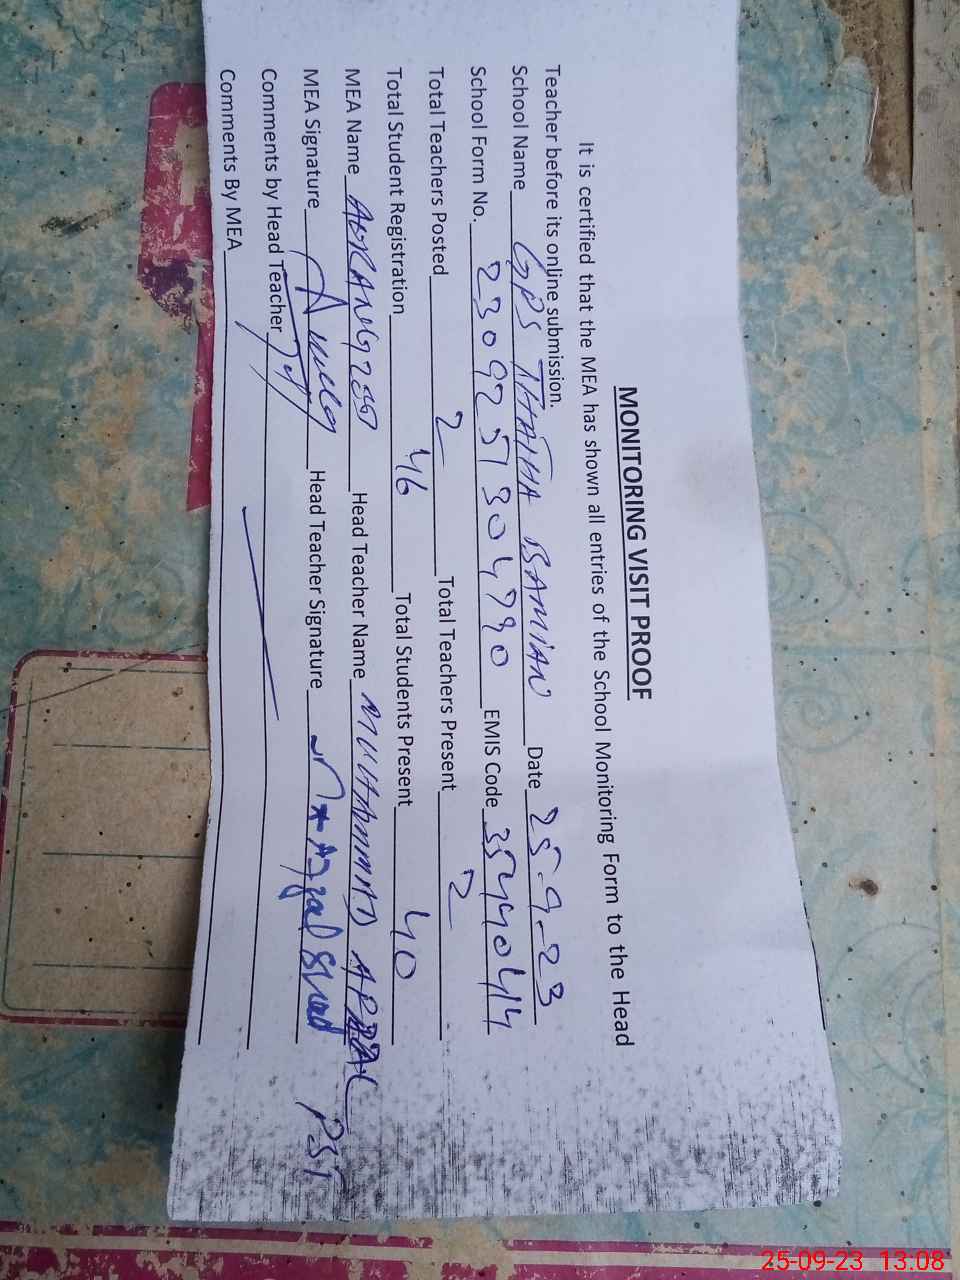 MONITORING VISIT PROOF
It is certified that the MEA has shown all entries of the School Monitoring Form to the Head
Teacher before its online submission.
School Name GPS THATHA BAMIAN Date 25-9-23
School Form No. 2309251304990 EMIS Code 35440414
Total Teachers Posted 2 Total Teachers Present 2
Total Student Registration 46 Total Students Present 40
MEA Name AORANGZEB Head Teacher Name MUHAMMAD AFZAL
MEA Signature Head Teacher Signature PST
Comments by Head Teacher
Comments By MEA
25-09-23 13:08